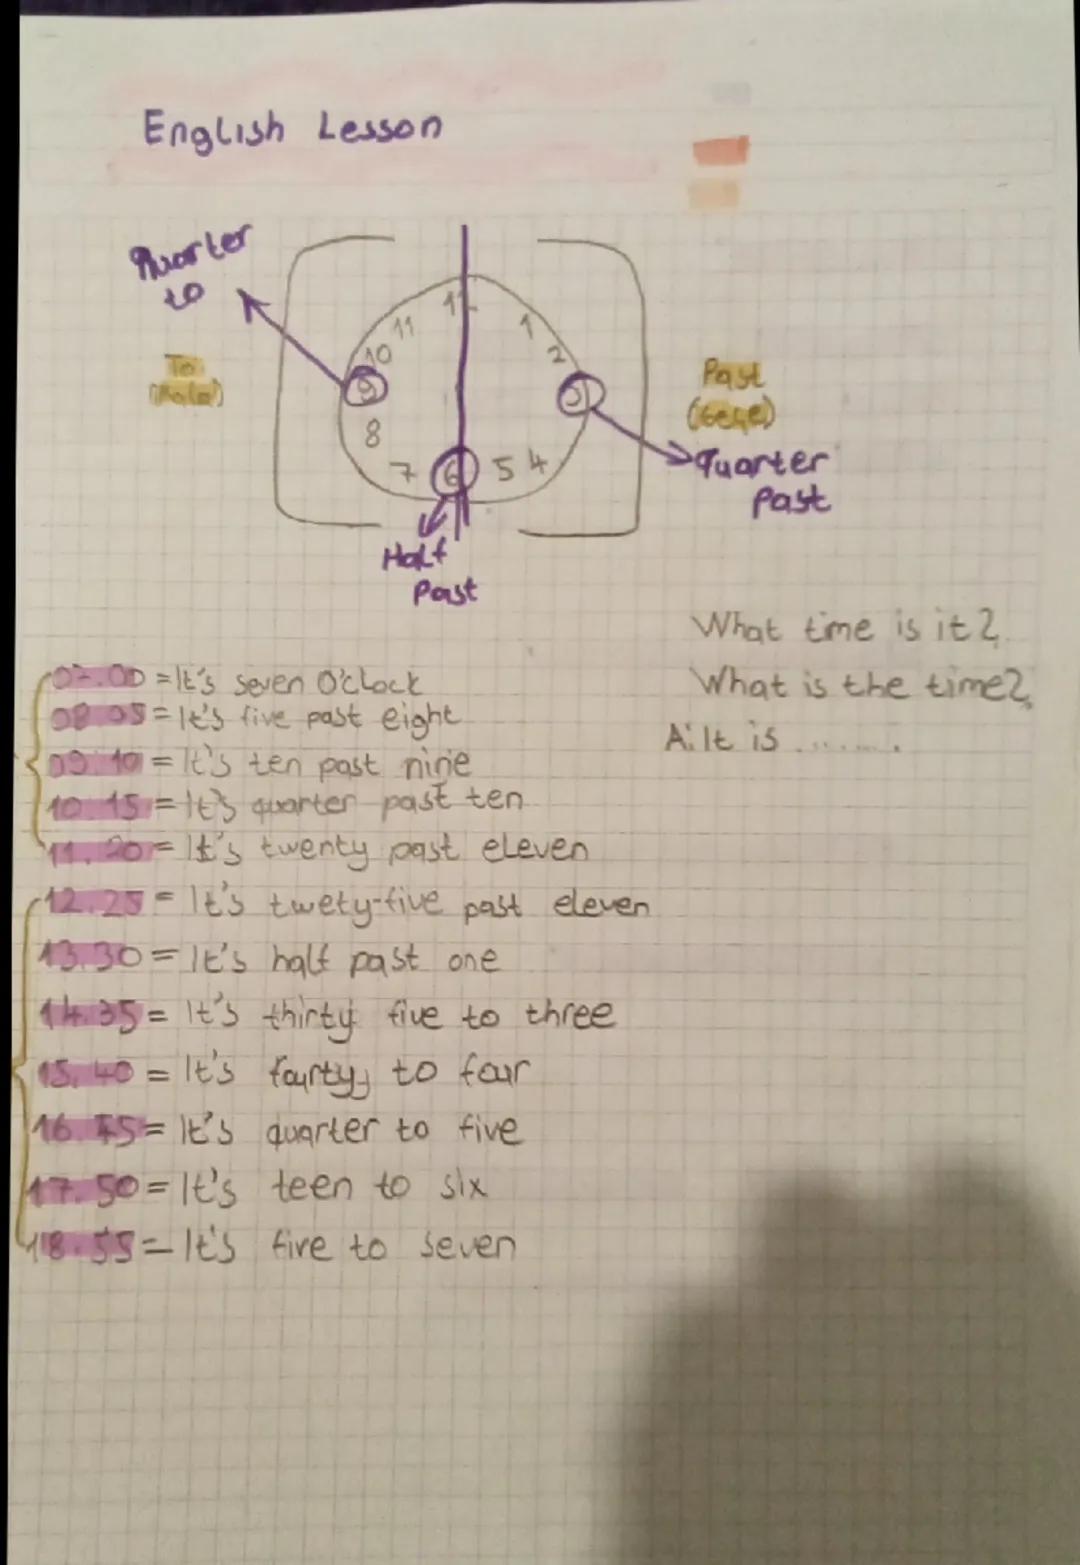 English Lesson
Quarter
to
11
12
1
10
2
9
3
8
7
6
5 4
To
(Kala)
Past
(Geçe)
Quarter
Past
Half
Past
What time is it?
What is the time?
A: It is ........
07.00 = It's seven O'clock
08 05 = It's five past eight
09.10 = It's ten past nine
10.15 = It's quarter past ten
11.20 = It's twenty past eleven
12.25 = It's twety-five past eleven
13.30 = It's half past one
14.35 = It's thirty five to three
15.40 = It's fourty to four
16.45 = It's quarter to five
17.50 = It's teen to six
18.55 = It's five to seven